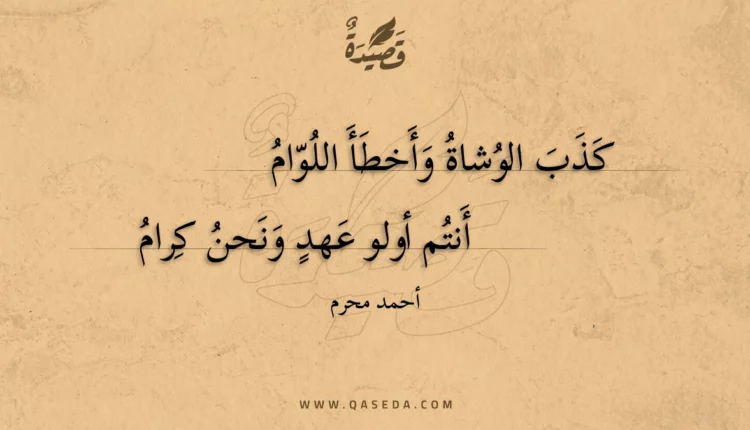 قَصِيدَةٌ
كَذَبَ الوُشاةُ وَأَخطَأَ اللُوّامُ
أَنتُم أولو عَهدٍ وَنَحنُ كِرامُ
أحمد محرم
WWW.QASEDA.COM